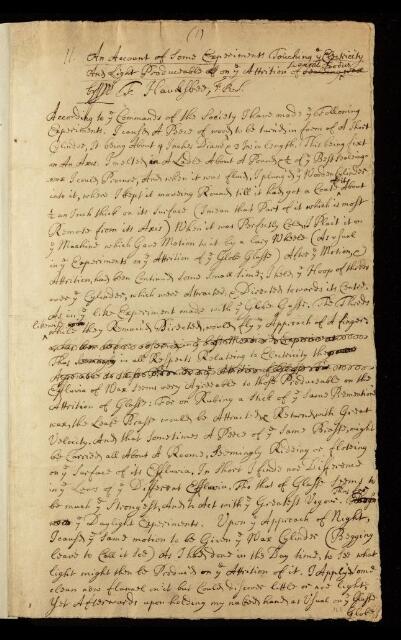 (1)
11. An Account of Some Experiments Touching ye Electricity
And Light Produceable on ye Attrition of several Bodies
by Mr Fr. Hauksbee, F.R.S.
According to ye Commands of the Society I have made ye following
Experiments. I caused A Peece of wood to be turned in form of A Short
Cylinder, It being About 4 Inches Diamr & 3 In in Length. This being fixt
on An Axis, I melted in A Ladle About A Pound & ½ of ye Best
wax I could Procure, And when it was fluid, I plung'd ye Wooden Cylinder
into it, where I kept it moveing Round till it had got a Coat About
½ an Inch thick on its Surface (I mean that Part of it which is most
Remote from its Axis) When it was Perfectly Cold I Plac't it on
ye Machine which Gave Motion to it by a Large Wheele (As usual
in ye Experiments on ye Attrition of ye Globe Glasse) After ye Motion, &
Attrition, had been Continued some Small time; I held ye Hoop of threds
over ye Cylinder, which were Attracted, & Directed towards its Center.
As in ye like Experiment made with ye Globe Glass. The Threds
likewise while they Remain'd Directed, would fly ye Approach of A finger;
That in all Respects Relateing to Electricity the
Effluvia of Wax seem very Agreeable to those Produceable on the
Attrition of Glasse: For on Rubing a Stick of ye Same Aforemention'd
wax, the Leafe Brasse would be Attracted & Return'd with Great
Velocity, And that Sometimes A Peece of ye Same Brasse, might
be Carried all About A Roome, Seemingly Rideing or floteing
on ye Surface of its Effluvia. In Short I finde noe Difference
in ye Laws of ye Different Effluvia. Tho that of Glasse Seems to
be much ye Strongest, And to Act with ye Greatest Vigour.
ye Daylight Experiments. Upon ye Approach of Night,
I caused ye Same motion to be Given ye Wax Cylinder (Begging
leave to Call it Soe) As I had done in the Day time, to see what
light might then be Produced on ye Attrition of it. I Apply'd some
clean new flannel on it but Could discover little or noe light;
Yet Afterwards upon holding my naked hand as Usual on ye Glasse
Globe